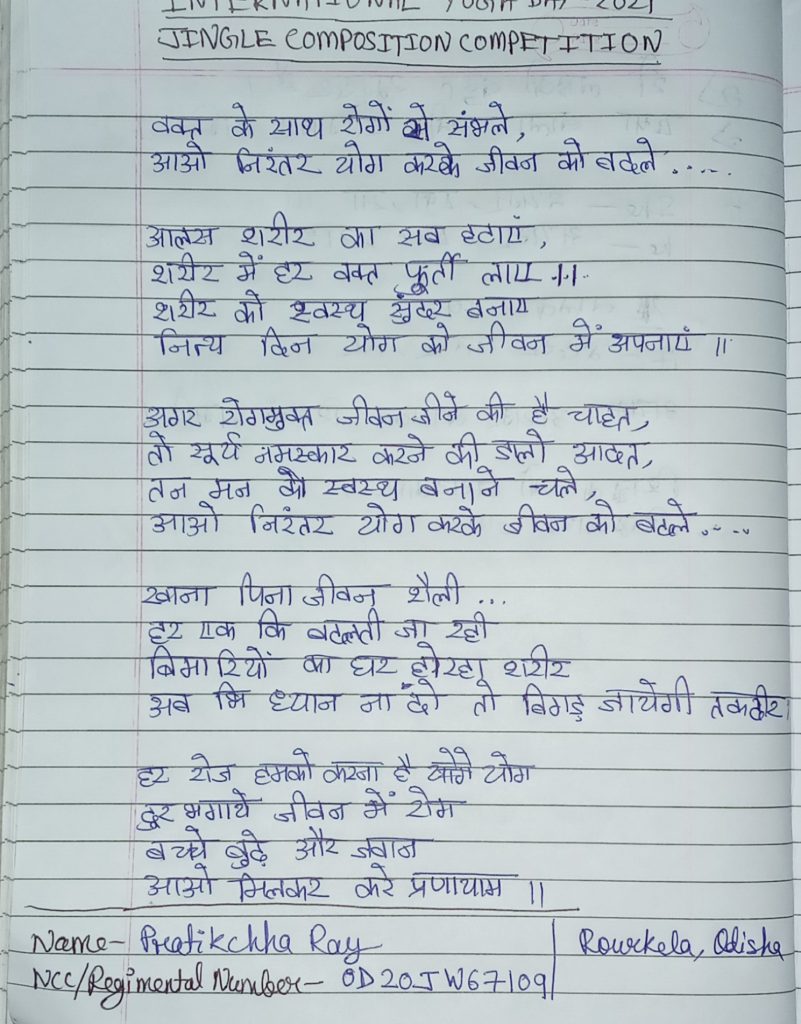 INTERNATIONAL YOGA DAY - 2021
JINGLE COMPOSITION COMPETITION
वक्त के साथ रोगों से संभले,
आओ निरंतर योग करके जीवन को बदले .....
आलस शरीर का सब हटाएं,
शरीर में हर वक्त फुर्ती लाए ।।
शरीर को स्वस्थ सुंदर बनाए
नित्य दिन योग को जीवन में अपनाएं ॥
अगर रोगमुक्त जीवन जीने की है चाहत,
तो सूर्य नमस्कार करने की डालो आदत,
तन मन को स्वस्थ बनाने चले,
आओ निरंतर योग करके जीवन को बदले....
खाना पिना जीवन शैली ...
हर एक कि बदलती जा रही
बिमारियों का घर हो रहा शरीर
अब भि ध्यान ना दो तो बिगड़ जायेगी तकदीर।
हर रोज हमको करना है योग
दुर भगाये जीवन में रोग
बच्चे बुढ़े और जवान
आओ मिलकर करे प्रणायाम ॥
Name- Pratikchha Ray Rourkela, Odisha
NCC/Regimental Number- OD20JW67109